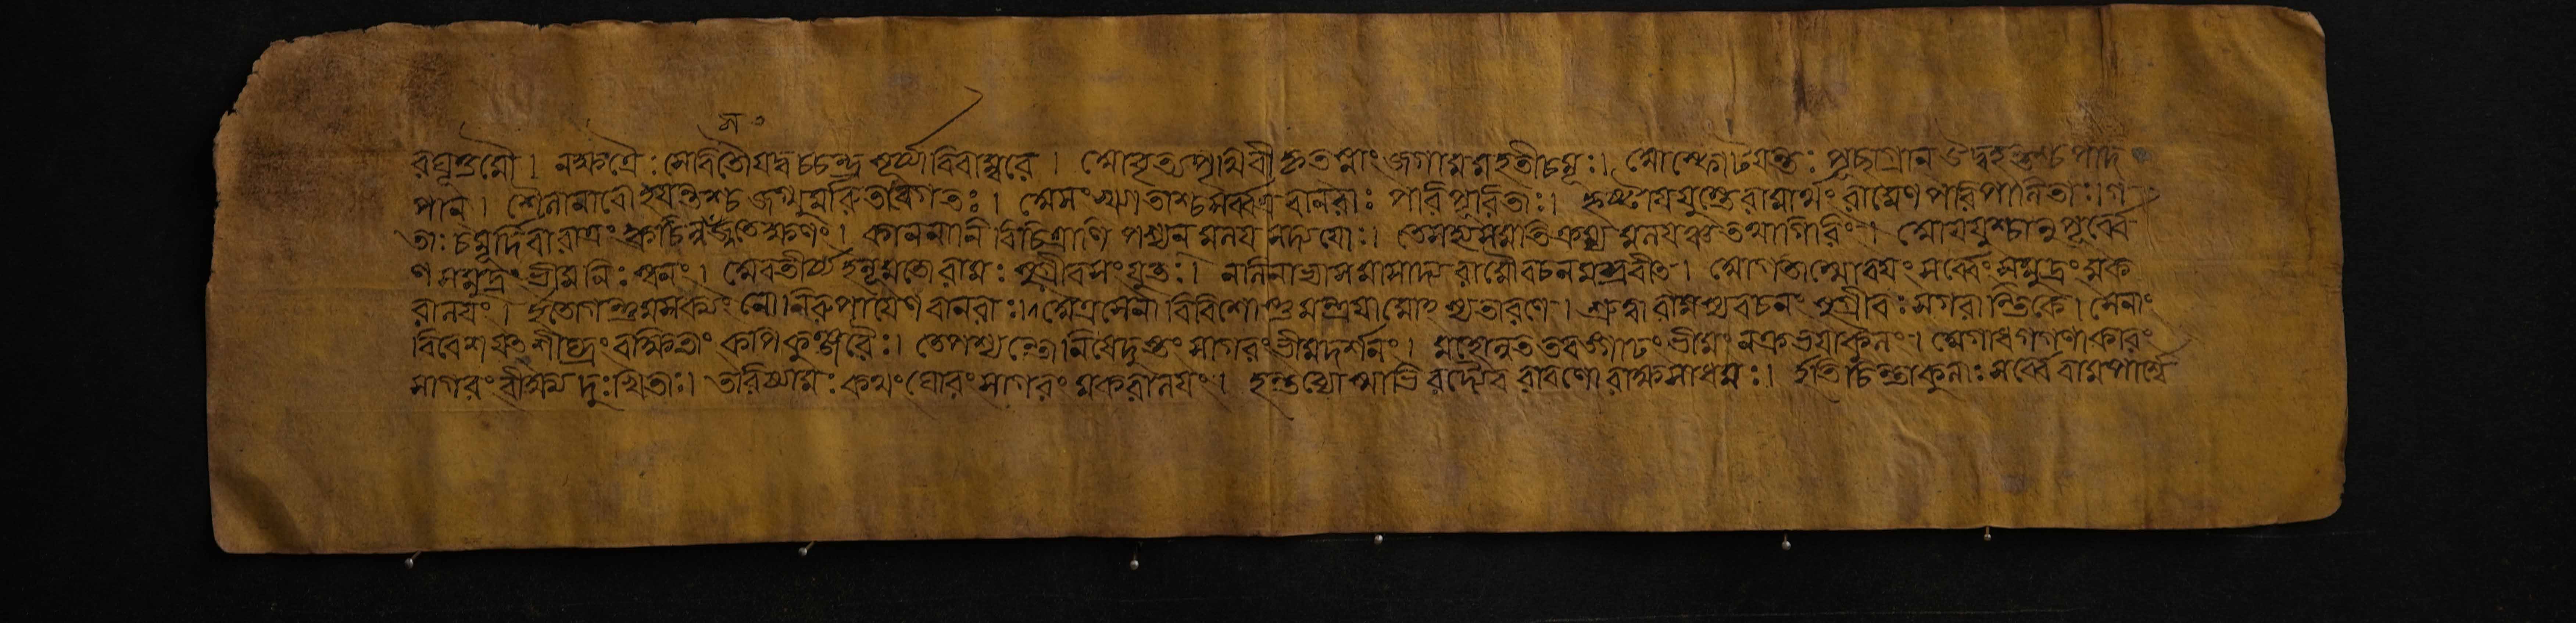 রঘূত্তমৌ। নক্ষত্রৈঃ সেবিতৌ যদ্বচ্চন্দ্রসূর্য্যাবিবাম্বরে। সোবৃত্য পৃথিবীং কৃৎস্নাং জগাম মহতী চমূঃ। স্মোস্ফোটযন্তঃ পুচ্ছাগ্রান উদ্বহন্তশ্চ পাদ
পান। শৈলানারোহযন্তশ্চ জগ্মুর্মারুতবেগতঃ। স্মসংখ্যাতাশ্চ সর্ব্বত্র বানরাঃ পরিপূরিতাঃ। হৃষ্টাস্ত যযুস্তে রামার্থং রামেণ পরিপালিতাঃ। গ
তাঃ চমূর্দিবারাত্রং ক্বচিন্ন সজ্জতে ক্ষণং। কাননানি বিচিত্রাণি পশ্যন মলয সহ্যযোঃ। তে সহ্যং সমতিক্রম্য মলযঞ্চ তথা গিরিং। স্মোযযুশ্চানুপূর্ব্বে
ণ সমুদ্রং ভীমনিঃস্বনং। স্মবতীর্য্য হনূমতো রামঃ সুগ্রীবসংযুতঃ। সলিলাভ্যাসমাসাদ্য রামো বচনমব্রবীৎ। স্মোগতাস্মো বযং সর্ব্বে সমুদ্রং মক
রালযং। ইতো গন্তুমসক্যং নো নিরুপাযেণ বানরাঃ। স্মত্র সেনা নিবিশো শু মন্ত্রযামোস্য তারণে। শ্রুত্বা রামস্য বচনং সুগ্রীবঃ সগরান্তিকে। সেনাং
নিবেশযৎ শীঘ্রং রক্ষিতাং কপিকুঞ্জরৈঃ। তে পশ্যন্তো নিষেদুস্তং সাগরং ভীমদর্শনং। মহোন্নত তরঙ্গাঢ্যং ভীমং নক্রভযাকুলং। স্মগাধ গগণাকারং
সাগরং বীক্ষ্য দুঃখিতাঃ। তরিষ্যামঃ কথং ঘোরং সাগরং মকরালযং। হন্তব্যোস্মাভিরদ্যৈব রাবণো রাক্ষসাধমঃ। ইতি চিন্তাকুলাঃ সর্ব্বে রামপার্শ্বে